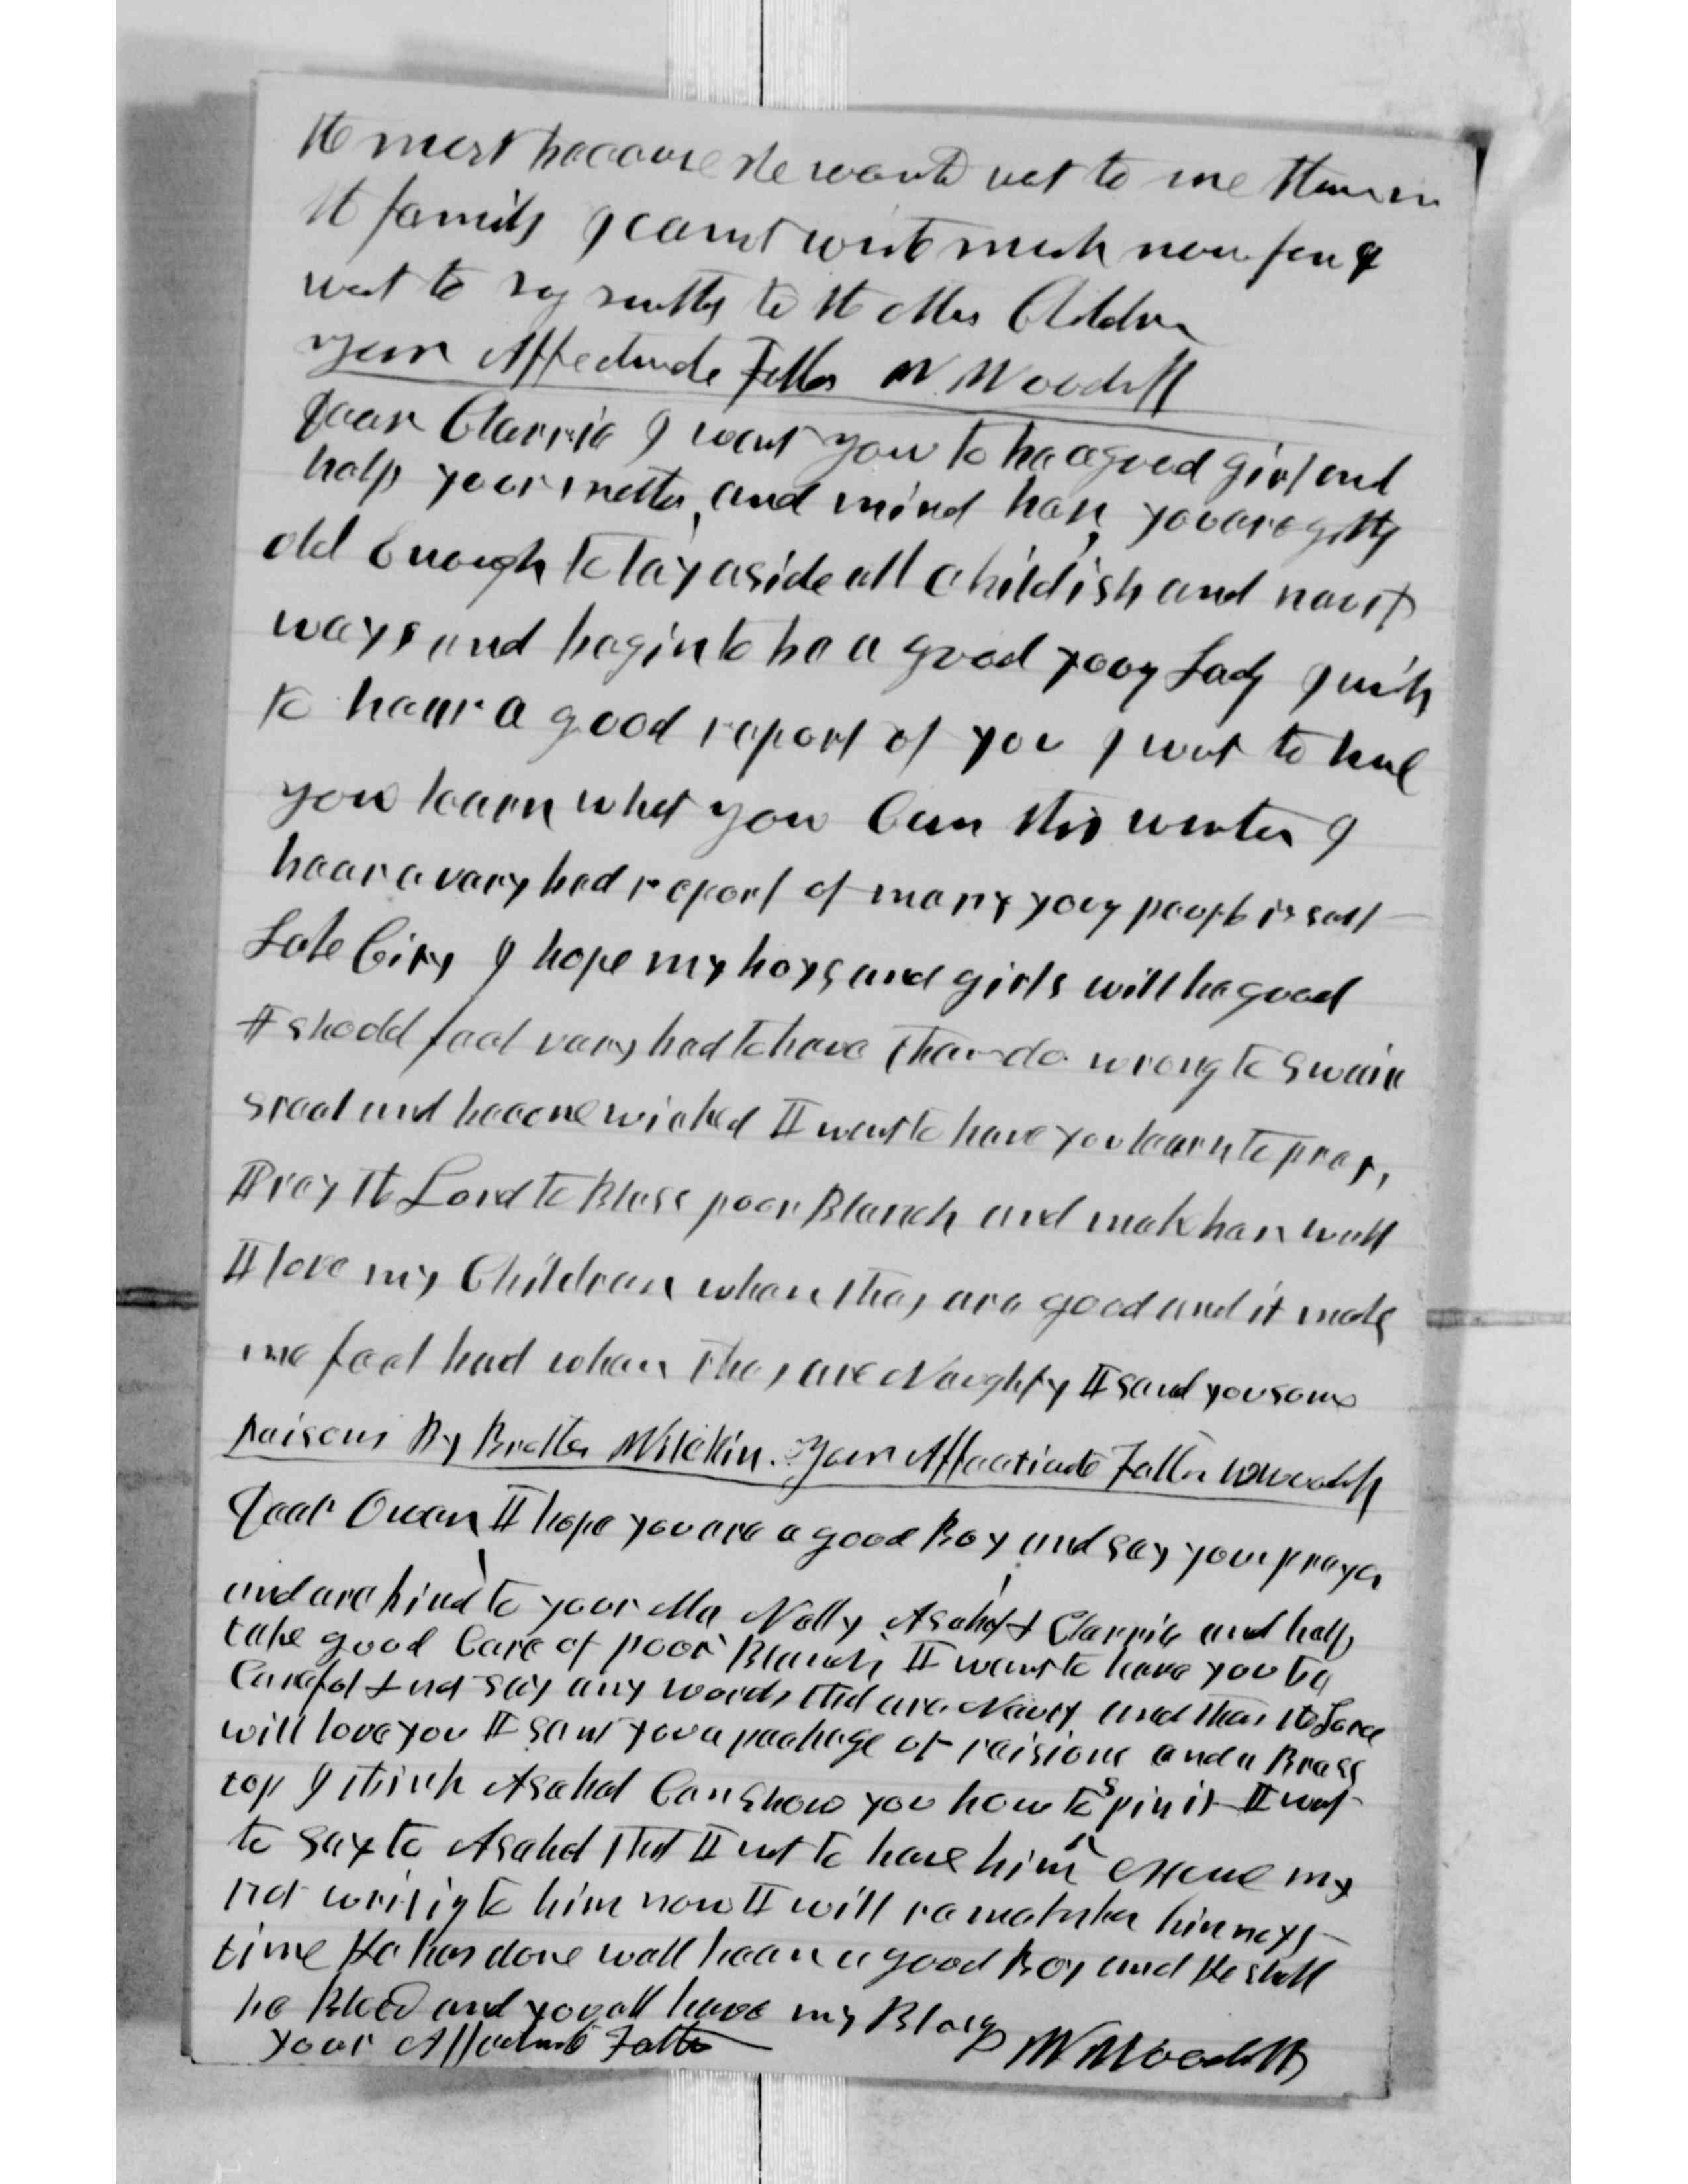 the most because she wants not to me than in
the family I cannot write much now for I
want to say something to the other Children
your Affectionate Father W Woodruff
Dear Clarrie I want you to be a good girl and
help your mother, and mind her, you are getting
old Enough to lay aside all childish and nauty
ways and begin to be a good young Lady I wish
to hear a good report of you I want to have
you learn what you Can this winter I
hear a very bad report of many young people in salt
Lake City I hope my boys and girls will be good
I should feel very bad to have them do wrong to swair
steal and become wicked I want to have you learn to pray,
Pray the Lord to Bless poor Blanch and make her well
I love my Children when they are good and it makes
me feel bad when they are Naughty I send you some
raisons By Brother Wilckin. your Affectionate Father W Woodruff
Dear Owen I hope you are a good Boy and say your prayers
and are kind to your Ma Nelly Asahel & Clarrie and help
take good Care of poor Blanch, I want to have you be
Careful & not say any words that are Nauty and then the Lord
will love you I sent you a package of raisions and a Brass
top I think Asahel Can show you how to spin it I want
to say to Asahel that I want to have him excuse my
not writing to him now I will remember him next
time He has done well been a good Boy and He shall
be Blessed and you all have my Blessing
your Affectionate Father W Woodruff